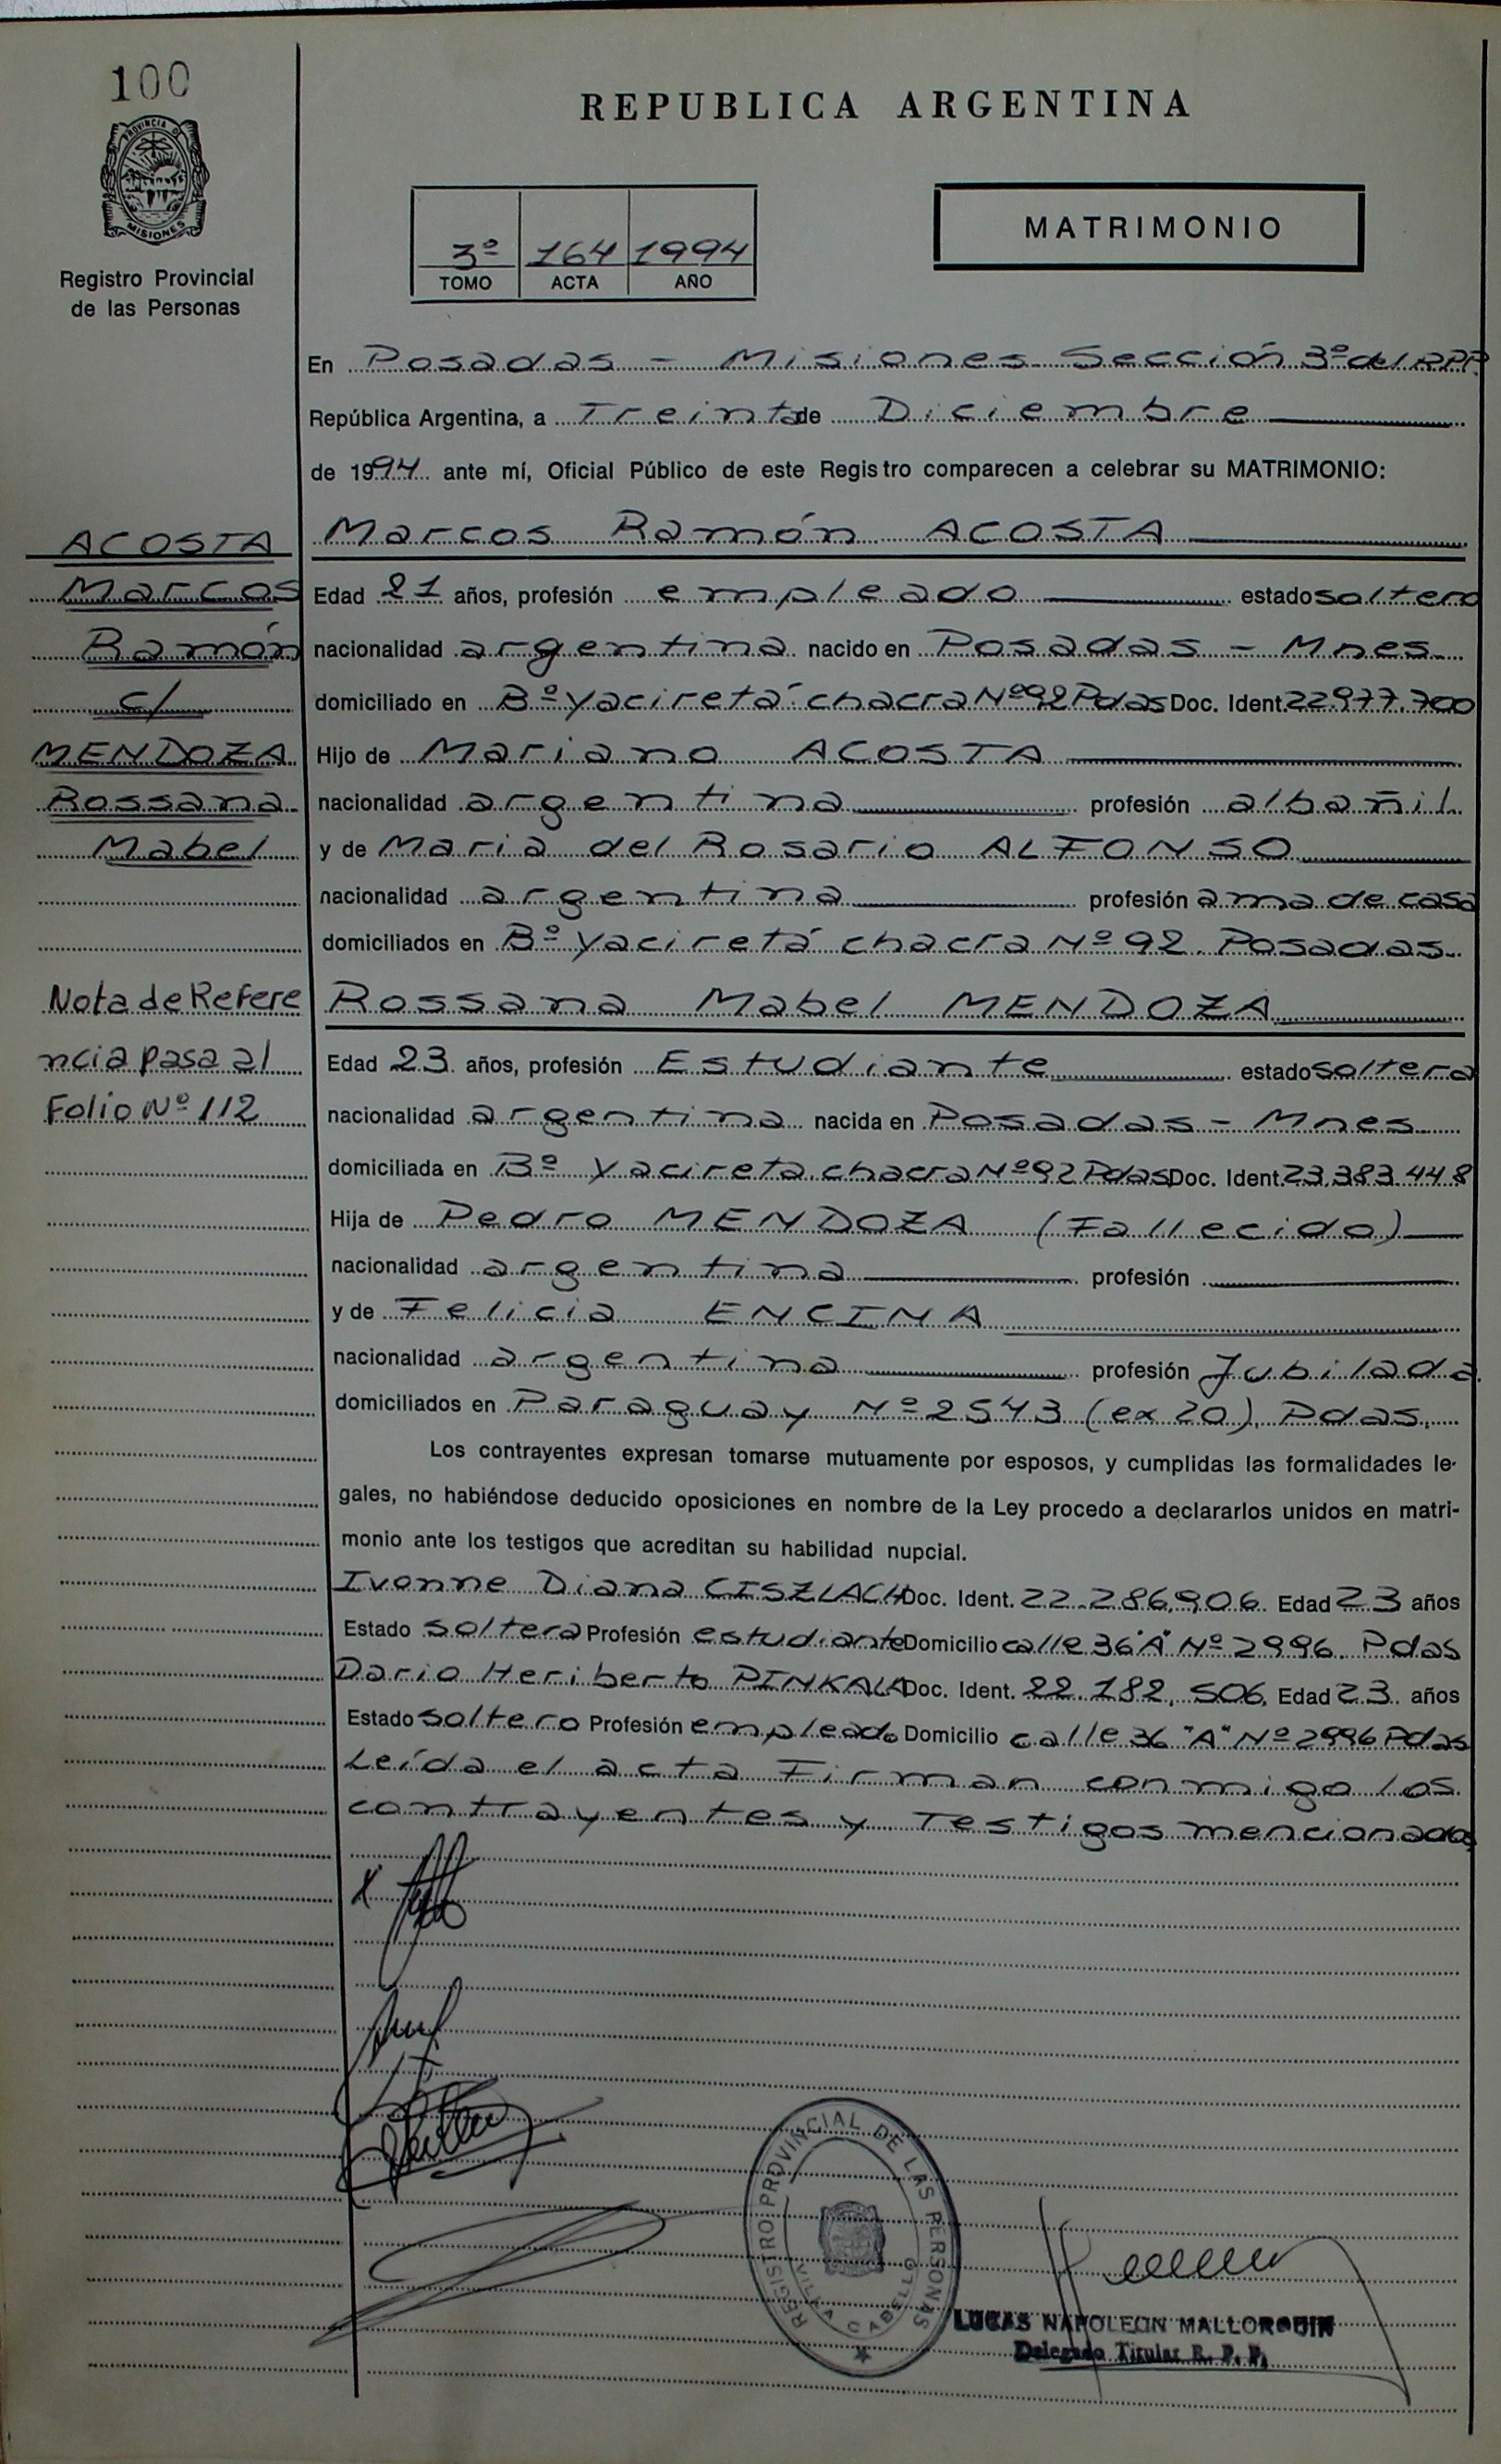 100
REPUBLICA ARGENTINA
PROVINCIA D
MISIONES
MATRIMONIO
3º 164 1994
TOMO ACTA AÑO
Registro Provincial
de las Personas
En Posadas - Misiones Sección 3º del RPP.
República Argentina, a Treinta de Diciembre
de 1994 ante mí, Oficial Público de este Registro comparecen a celebrar su MATRIMONIO:
ACOSTA
Marcos
Ramón
c/
MENDOZA
Rossana
Mabel
Marcos Ramón ACOSTA
Edad 21 años, profesión empleado estado soltero
nacionalidad argentina nacido en Posadas - Mnes.
domiciliado en Bº Yaciretá chacra Nº 92 Pdas Doc. Ident. 22.977.700
Hijo de Mariano ACOSTA
nacionalidad argentina profesión albañil
y de Maria del Rosario ALFONSO
nacionalidad argentina profesión ama de casa
domiciliados en Bº Yaciretá chacra Nº 92. Posadas.
Nota de Refere
ncia pasa al
Folio Nº 112
Rossana Mabel MENDOZA
Edad 23 años, profesión Estudiante estado soltera
nacionalidad argentina nacida en Posadas - Mnes
domiciliada en Bº Yacireta chacra Nº 92 Pdas Doc. Ident. 23.383.448
Hija de Pedro MENDOZA (Fallecido)
nacionalidad argentina profesión
y de Felicia ENCINA
nacionalidad argentina profesión Jubilada
domiciliados en Paraguay Nº 2543 (ex 20). Pdas.
Los contrayentes expresan tomarse mutuamente por esposos, y cumplidas las formalidades le-
gales, no habiéndose deducido oposiciones en nombre de la Ley procedo a declararlos unidos en matri-
monio ante los testigos que acreditan su habilidad nupcial.
Ivonne Diana CISZLACH Doc. Ident. 22.286.906 Edad 23 años
Estado soltera Profesión estudiante Domicilio calle 36 "A" Nº 2996. Pdas
Dario Heriberto PINKALA Doc. Ident. 22.182.506. Edad 23 años
Estado soltero Profesión empleado Domicilio calle 36 "A" Nº 2996 Pdas
Leída el acta Firman conmigo los
contrayentes y Testigos mencionados
REGISTRO PROVINCIAL DE LAS PERSONAS
VILLA CABELLO
LUCAS NAPOLEON MALLORQUIN
Delegado Titular R. P. P.